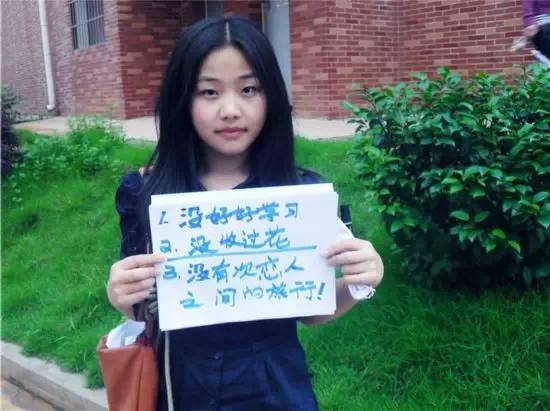 1. 没好好学习
2. 没收过花
3. 没有次恋人
之间的旅行!